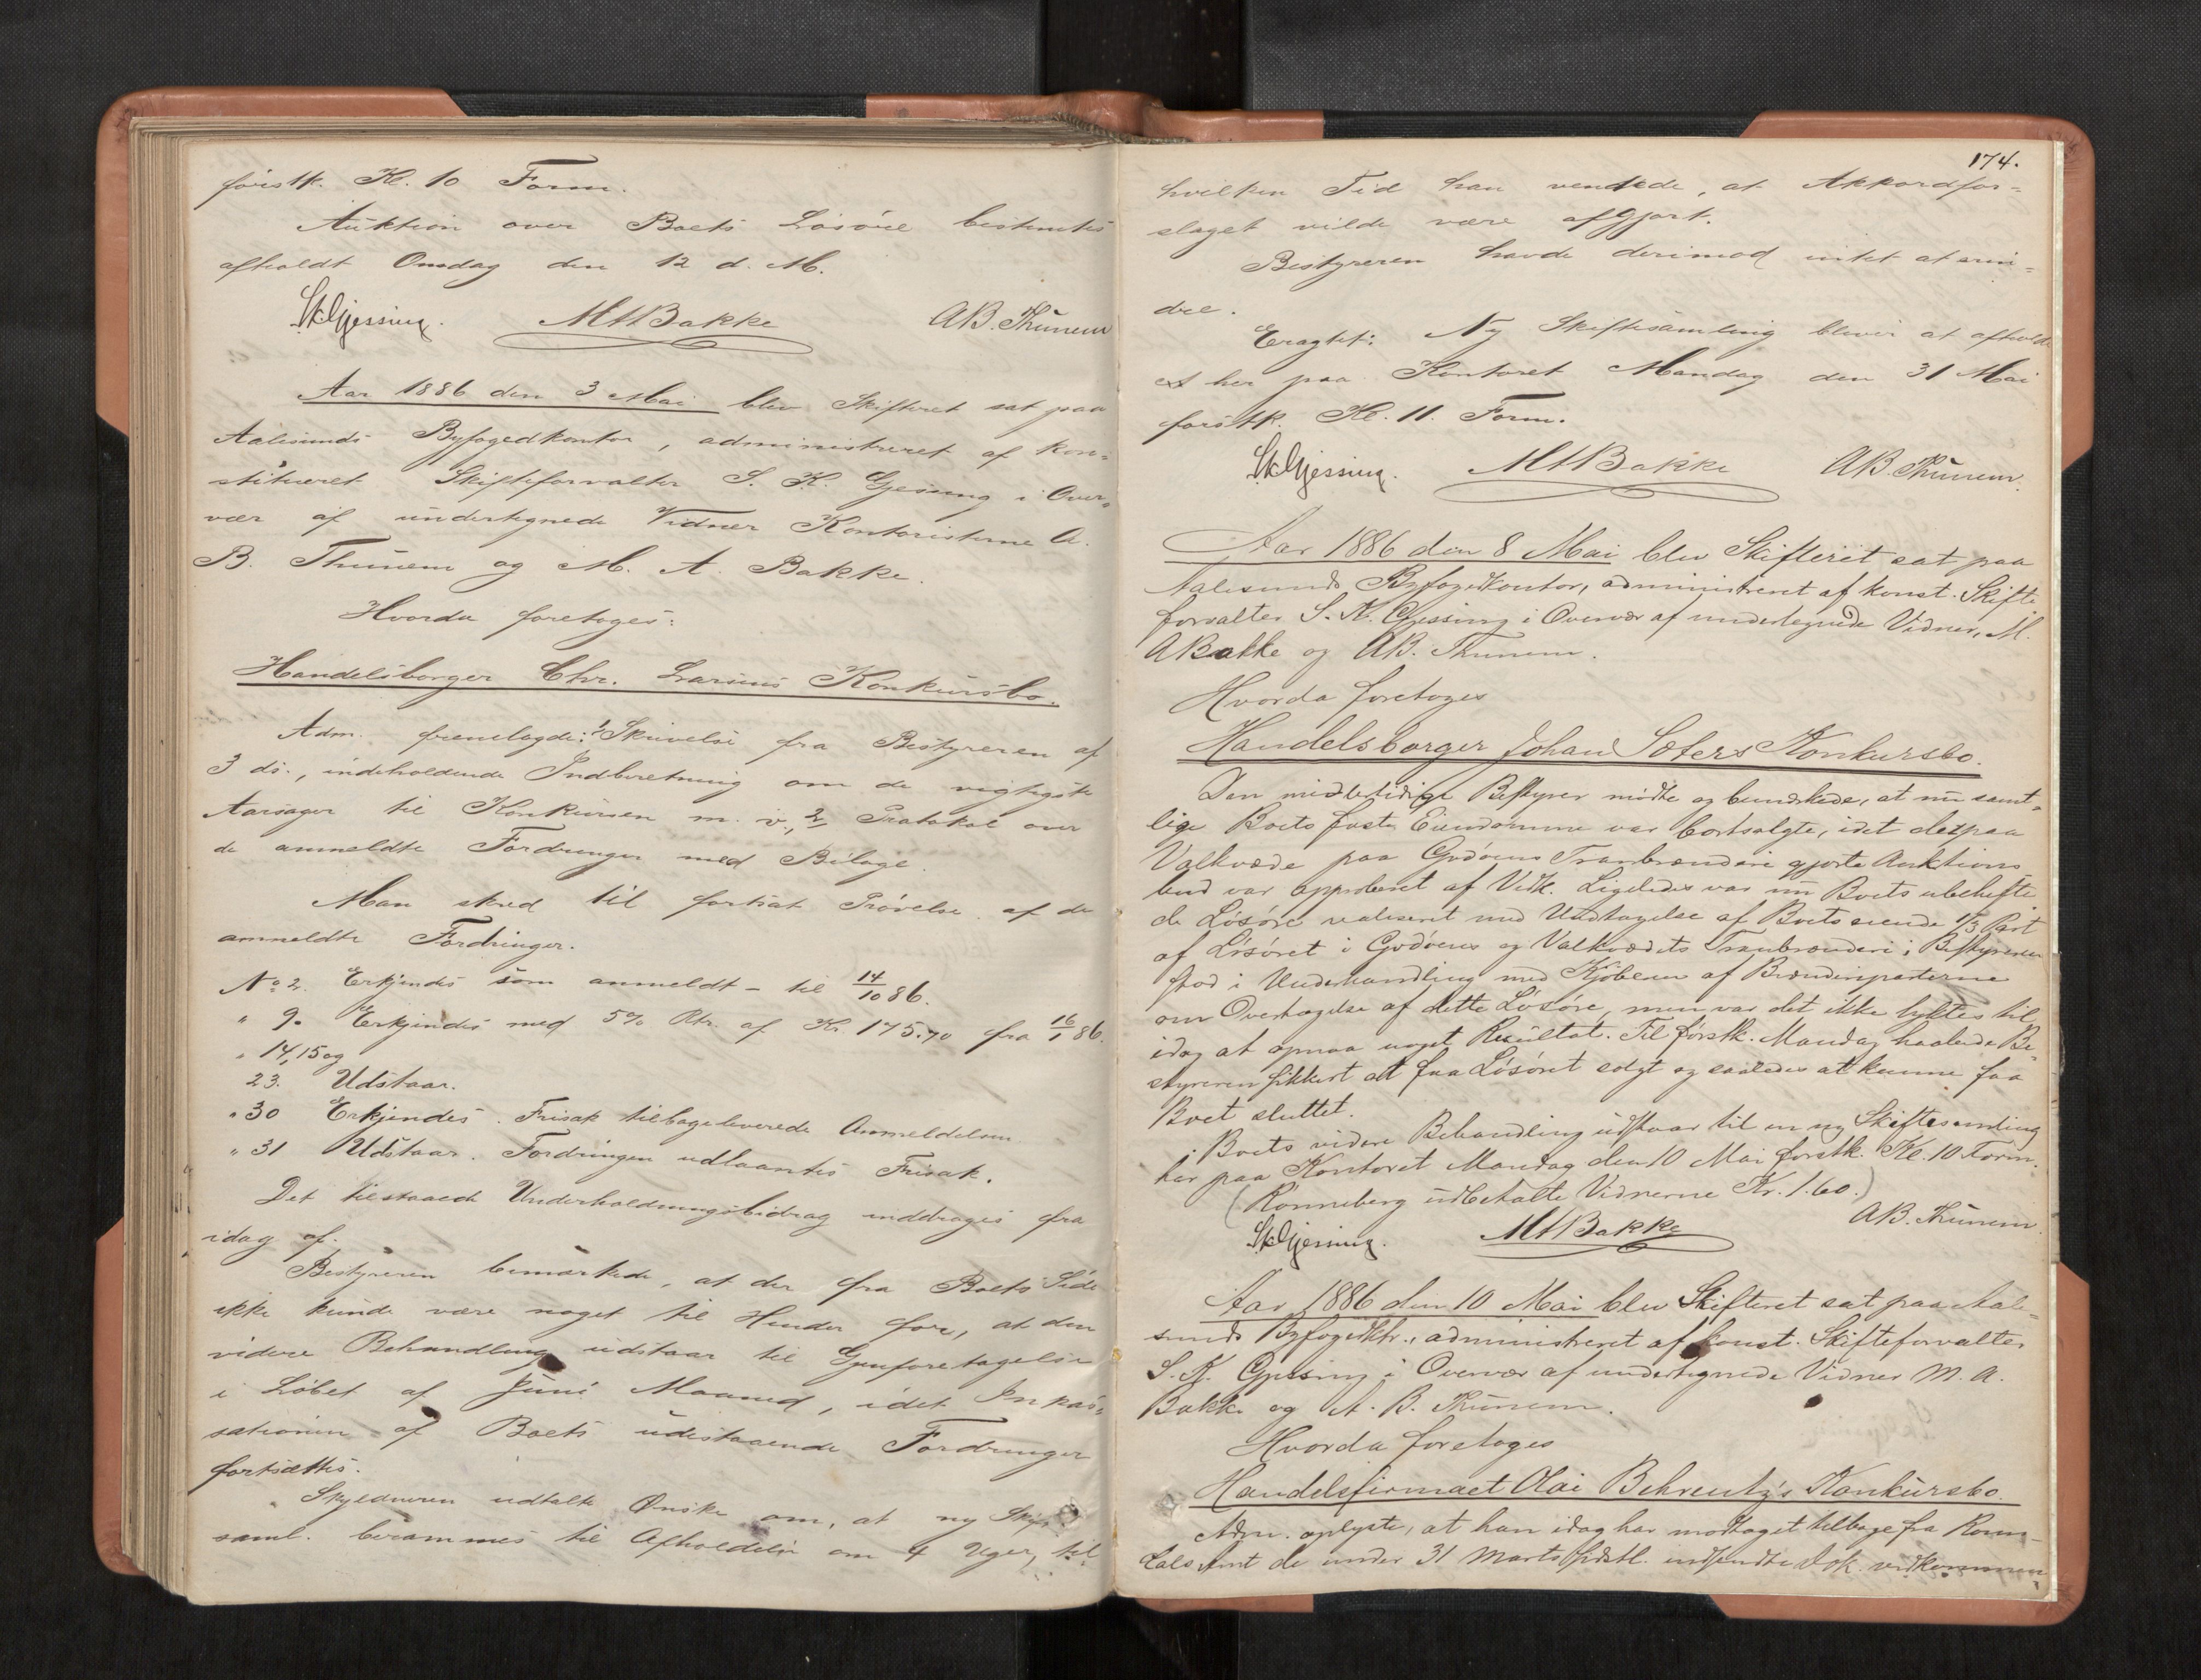 førstk. Kl. 10 Form.
Auktion over Boets Løsøre bestemtes
afholdt Onsdag den 12 d. M.
SKGjessing. MABakke AB. Thunem
Aar 1886 den 3 Mai blev Skifteret sat paa
Aalesunds Byfogedkontor, administreret af kon-
stitueret Skifteforvalter S. K. Gjessing i Over-
vær af undertegnede Vidner Kontoristerne A.
B. Thunem og M. A. Bakke.
Hvorda foretoges:
Handelsborger Chr. Larsens Konkursbo.
Adm. fremlagde: 1 Skrivelse fra Bestyreren af
3 ds., indeholdende Indberetning om de vigtigste
Aarsager til Konkursen m. v., 2 Protokol over
de anmeldte Fordringer med Bilage.
Man skred til fortsat Prøvelse af de
anmeldte Fordringer.
No 2. Erkjendes som anmeldt - til 14/10 86.
" 9. Erkjendes med 5% Rtr. af Kr. 175.70 fra 16/1 86.
" 14, 15 og
23. Udstaar.
" 30 Erkjendes. Frisak tilbageleverede Anmeldelsen
" 31 Udstaar. Fordringen udlaantes Frisak.
Det tilstaaede Underholdningsbidrag inddrages fra
idag af.
Bestyreren bemærkede, at der fra Boets Side
ikke kunde være noget til Hinder for, at den
videre Behandling udstaar til Gjenforetagelse
i Løbet af Juni Maaned, idet Inkas-
sationen af Boets udestaaende Fordringer
fortsættes.
Skyldneren udtalte Ønske om, at ny Skifte
saml. berammes til Afholdelse om 4 Uger, til
174.
hvilken Tid han ventede, at Akkordfor-
slaget vilde være afgjort.
Bestyreren havde derimod intet at erin-
dre.
Eragtet: Ny Skiftesamling bliver at afholde
et her paa Kontoret Mandag den 31 Mai
førstk. Kl. 11. Form.
SKGjessing. MABakke AB. Thunem.
Aar 1886 den 8 Mai blev Skifteret sat paa
Aalesunds Byfogedkontor, administreret af konst. Skifte
forvalter S. K. Gjessing i Overvær af undertegnede Vidner, M.
A Bakke og AB. Thunem.
Hvorda foretoges
Handelsborger Johan Sæters Konkursbo.
Den midlertidige Bestyrer mødte og bemærkede, at nu samt-
lige Boets faste Eiendomme var bortsolgte, idet det paa
Valkvæde paa Godøens Tranbrænderi gjorte Auktions
bud var approberet af Vedk. Ligeledes var nu Boets ubehefte
de Løsøre realiseret med Undtagelse af Boets eiende 1/3 Part
af Løsøret i Godøens og Valkvædets Tranbrænderi; Bestyreren
stod i Underhandling med Kjøberen af Brænderiparterne
om Overtagelse af dette Løsøre, men var det ikke lyktes til
idag at opnaa noget Resultat. Til førstk. Mandag haabede Be-
styreren sikkert at faa Løsøret solgt og saaledes at kunne faa
Boet sluttet.
Boets videre Behandling udstaar til en ny Skiftesamling
her paa Kontoret Mandag den 10 Mai førstk. Kl. 10 Form.
(Rønneberg udbetalte Vidnerne Kr. 1.60.)
SKGjessing. MABakke AB. Thunem
Aar 1886 den 10 Mai blev Skifteret sat paa Aale-
sunds Byfogedktr., administreret af konst. Skifteforvalter
S. K. Gjessing i Overvær af undertegnede Vidner M. A.
Bakke og A. B. Thunem.
Hvorda foretoges
Handelsfirmaet Olai Behrentz's Konkursbo.
Adm. oplyste, at han idag har modtaget tilbage fra Roms-
dals Amt de under 31 Marts sidstl. indsendte Dok. vedkommen